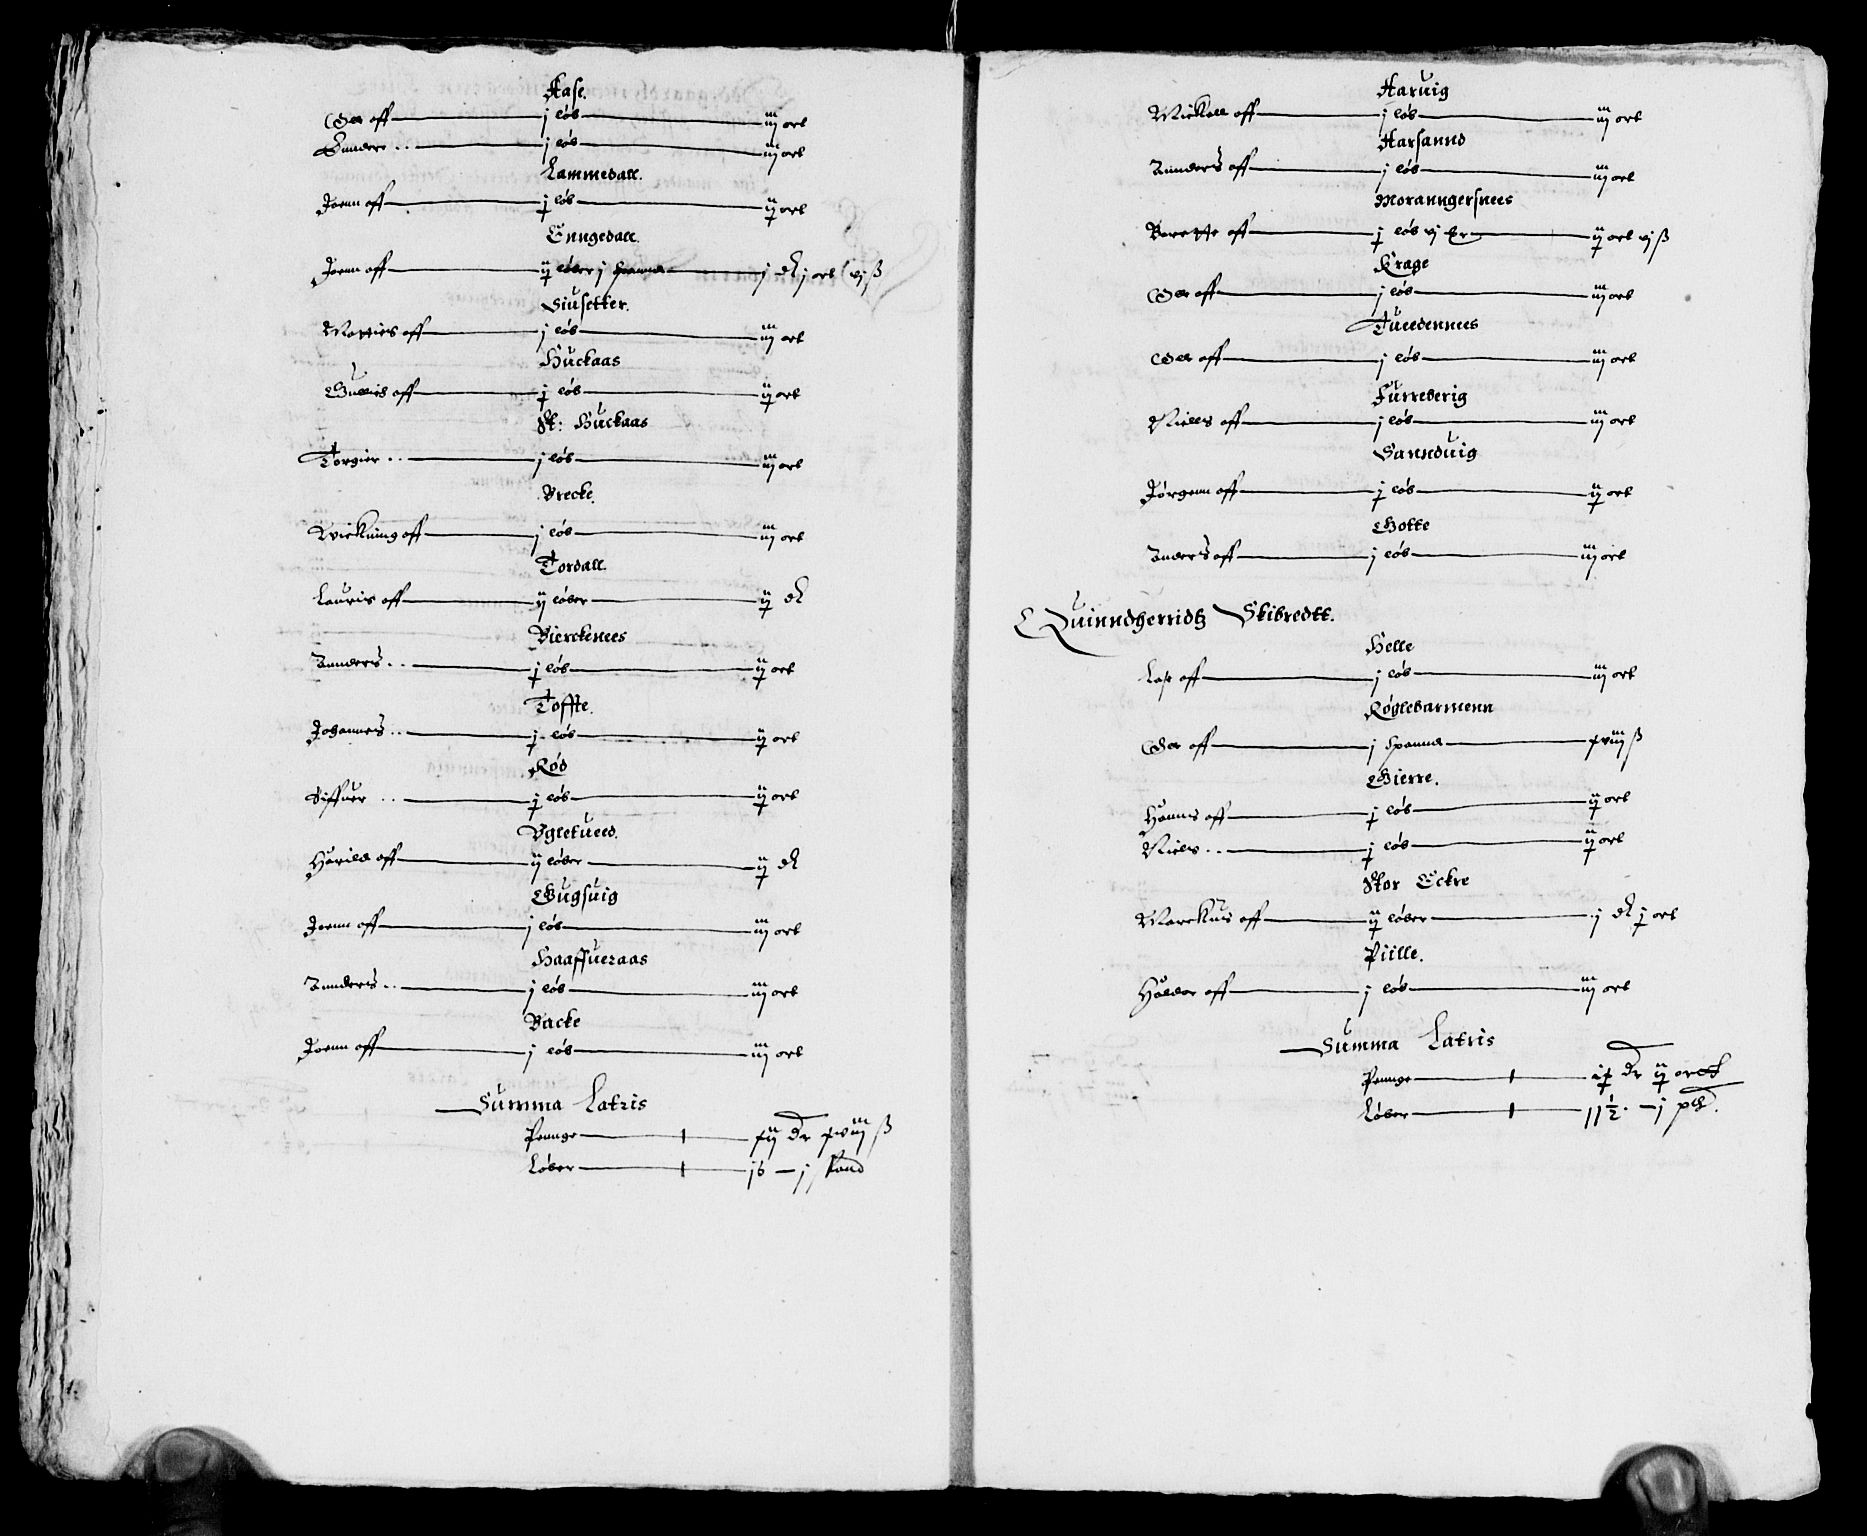 Aase.
Oll off — j løb — iij ort
Sunder .. — j løb — iij ort
Lammedall.
Joenn off — j løb — ij ort
Ennedall.
Joenn off — ij løber j spannd — j dlr j ort vj ß
Siusetter.
Mattis off — j løb — iij ort
Huckaas
Gullid off — j løb — ij ort
St: Huckaas
Torgier .. — j løb — iij ort
Brecke.
j løb — iij ort
Tordall.
Lauris off — ij løber — ij dlr
Bierckenees
Anders .. — j løb — ij ort
Toffte.
Johannes .. — j løb — ij ort
Rød
Siffuer .. — j løb — ij ort
Vgletueed.
Harild off — ij løber — ij dlr
Gugsuig
Joenn off — j løb — iij ort
Haaffueraas
Anders .. — j løb — iij ort
Backe
Joenn off — j løb — iij ort
Summa Latris
Pennge — xij dr xviij ß
Løber — 16 — j spand
Aaruig
Mickell off — j løb — iij ort
Aarsannd
Anders off — j løb — iij ort
Moranngersnees
off — j løb vj — ij ort vj ß
Krage
Oll off — j løb — iij ort
Tueedennees
Oll off — j løb — iij ort
Furreberig
Niells off — j løb — iij ort
Sannduig
Jørgenn off — j løb — ij ort
Gotte
Anders off — j løb — iij ort
Quinndherridtz Skibredtt.
Helle
Lass off — j løb — iij ort
Røglebarmenn
Oll off — j spannd — xviij ß
Gierre.
Hanns off — j løb — ij ort
Niels .. — j løb — ij ort
Stor Eckre
Marckus off — ij løber — j dlr j ort
Piille.
Haldor off — j løb — iij ort
Summa Latris
Pennge — ix dr ij ortt
Løber — 11 1/2. — j pd.